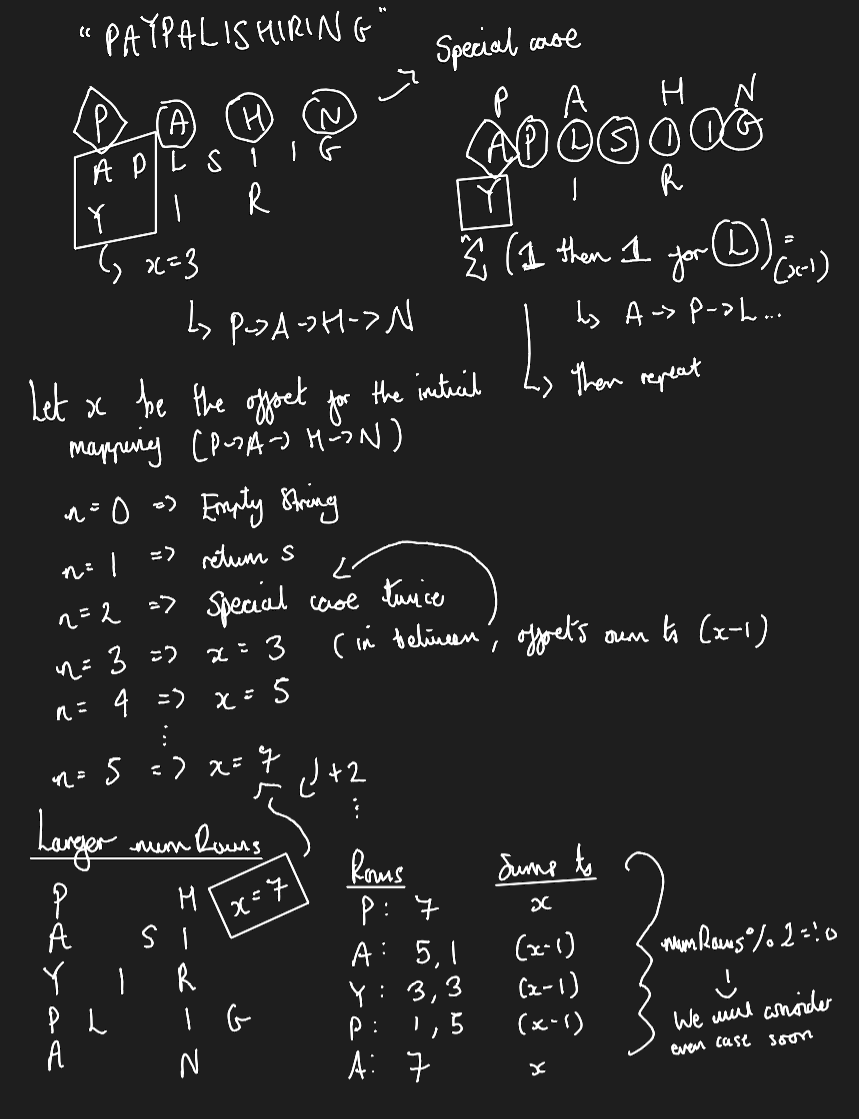 "PAYPALISHIRING"
Special case
P A H N
A P L S I I G
Y I R
x=3
P->A->H->N
P A H N
A P L S I I G
Y I R
Σ (1 then 1 for L) = (x-1)
A -> P -> L ...
then repeat
Let x be the offset for the initial
mapping (P->A-> H->N)
n=0 => Empty String
n=1 => return s
n=2 => Special case twice
(in between, offsets sum to (x-1)
n=3 => x=3
n=4 => x=5
⋮
n=5 => x=7
+2
⋮
Larger numRows
P H
A S I
Y I R
P L I G
A N
x=7
Rows Sums to
P: 7 x
A: 5,1 (x-1)
Y: 3,3 (x-1)
P: 1,5 (x-1)
A: 7 x
numRows % 2 =!0
We will consider
even case soon